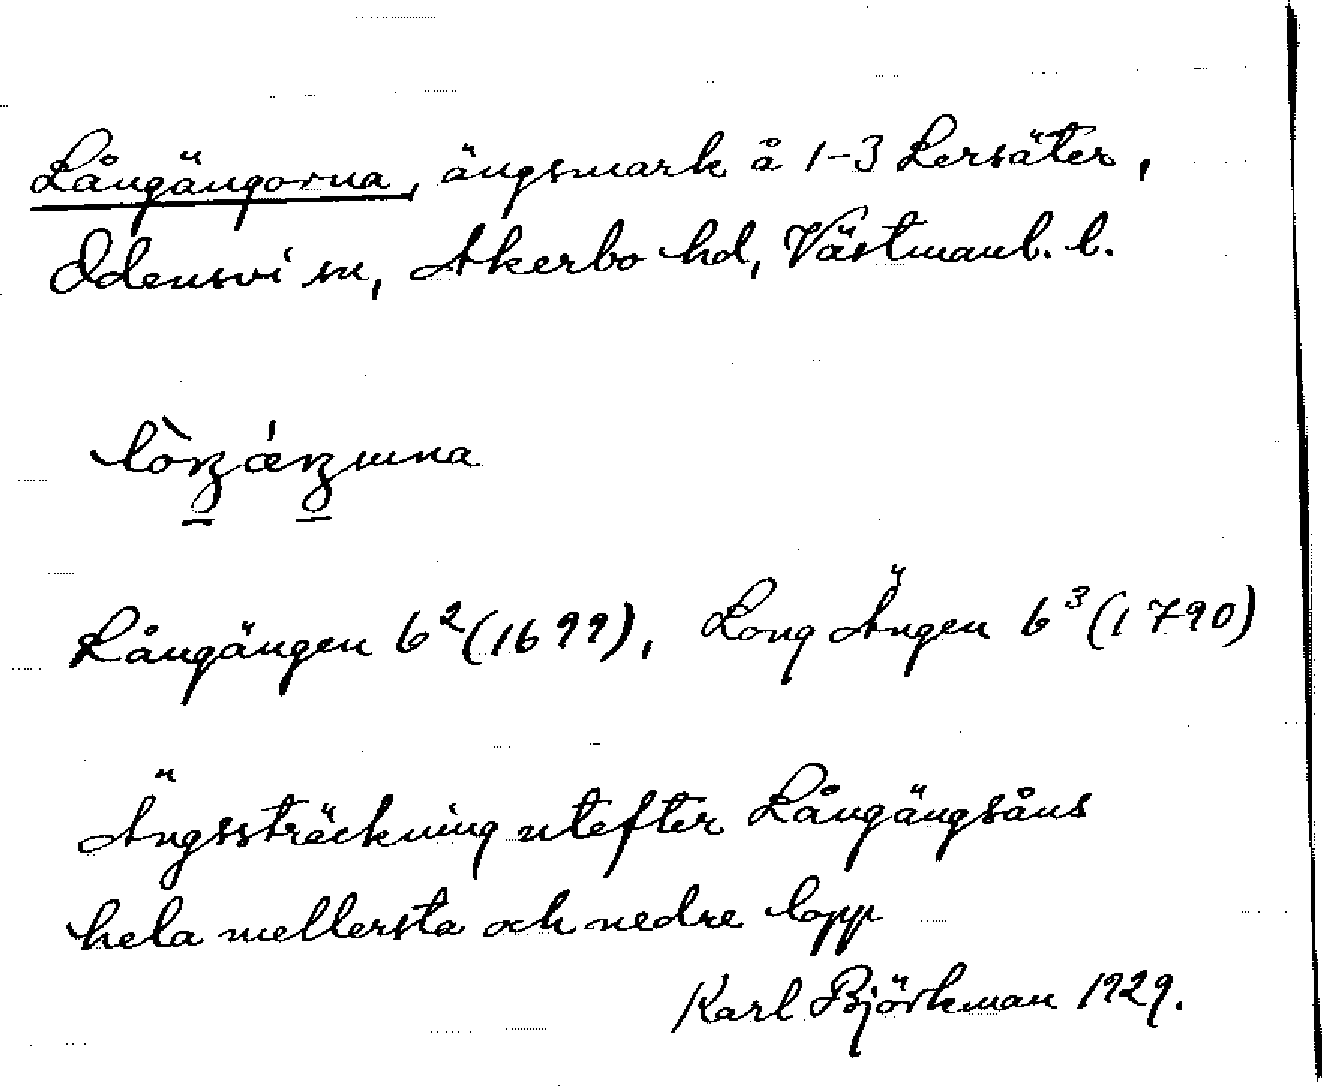 Långängorna, ängsmark å 1-3 Lersäter,
Odensvi sn, Åkerbo hd, Västmanl. l.
Långängen b²(1699), Long Ängen b³(1790)
Ängssträckning utefter Långängsåns
hela mellersta och nedre lopp
Karl Björkman 1929.